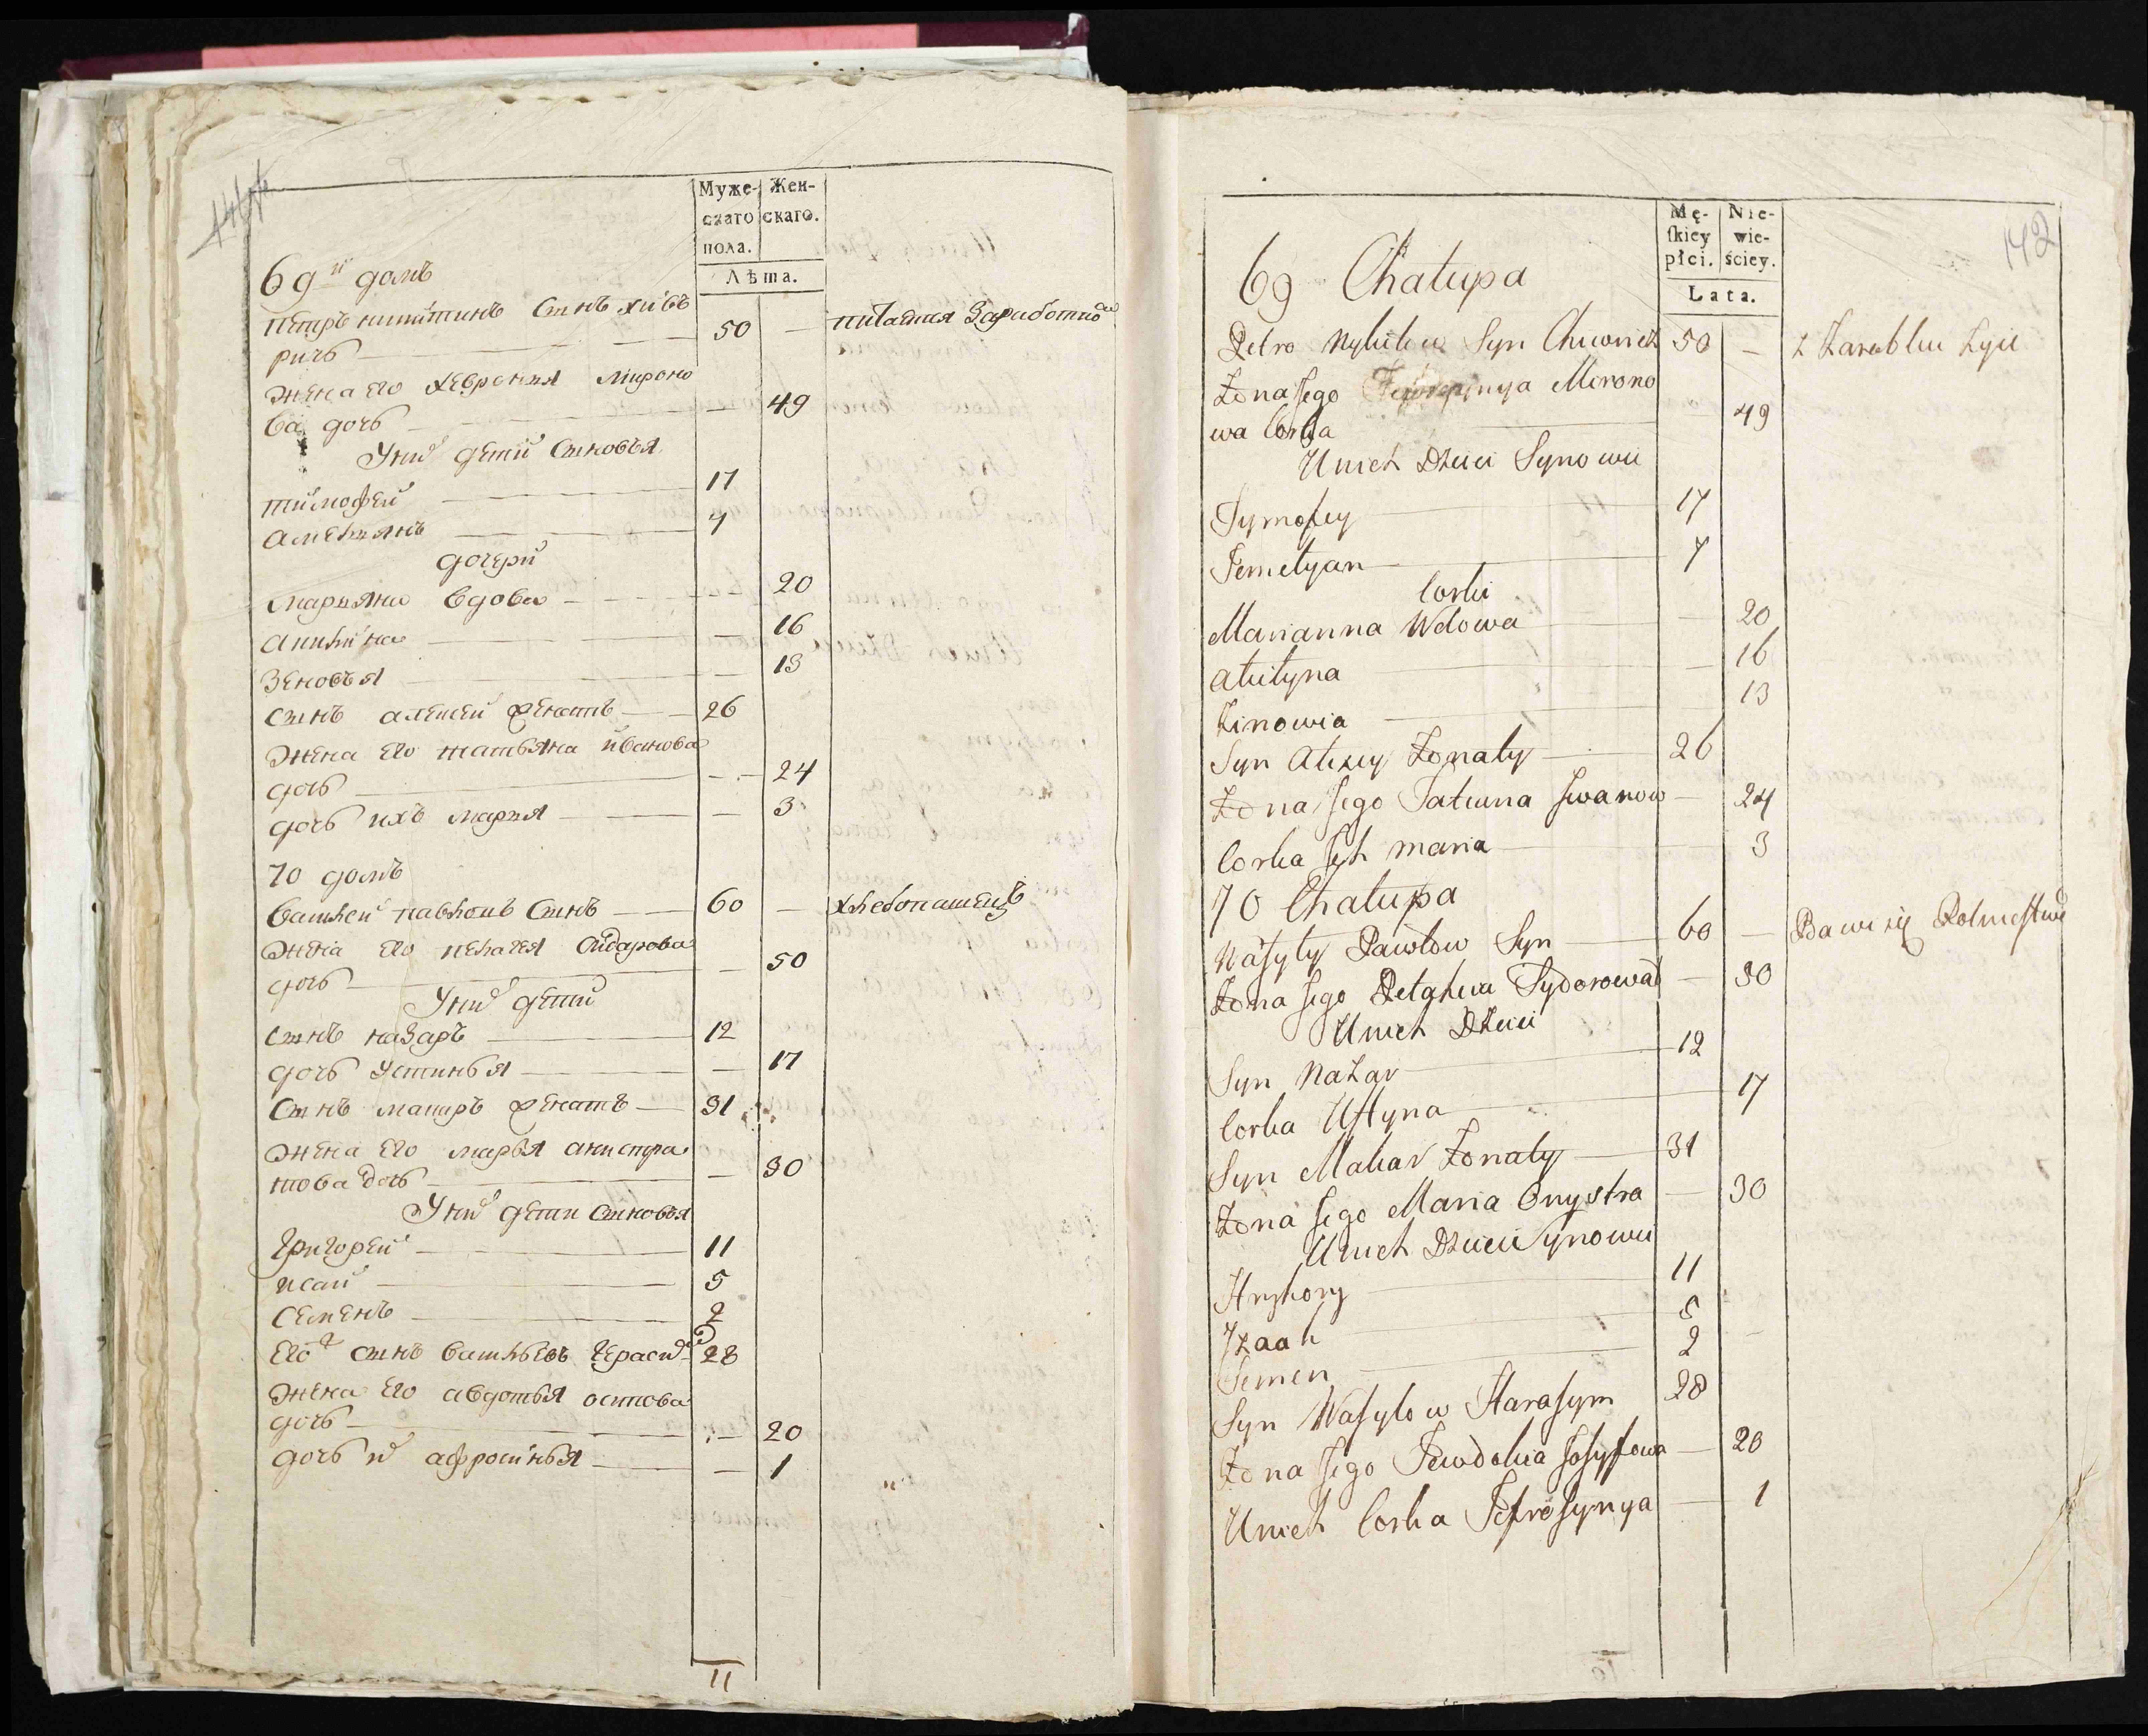 Муже-
скаго
пола.
Жен-
скаго.
Лѣта.
69й домъ
Петръ никитинъ Сынъ хивъ
ричъ — 50 — питается Заработкою
Жена его хевронья мироно
ва дочь — 49
У них дети Сыновья
тимофей — 17
амельянъ — 7
дочери
марьяна вдова — 20
акилина — 16
Зеновья — 13
Сынъ алексей женатъ — 26
Жена Его татьяна иванова
дочь — 24
дочь ихъ марья — 3
70 домъ
Василей павловъ Сынъ — 60 — хлебопашецъ
Жена Его пелагея Сидарова
дочь — 50
У них дети
Сынъ назаръ — 12
дочь Устинья — 17
Сынъ макаръ женатъ — 31
Жена Его марья анистра
това дочь — 30
У них дети Сыновья
Григорей — 11
исай — 5
Семенъ — 2
Его Сынъ васильевъ Герасим 28
Жена Его авдотья
дочь — 20
дочь их афросинья — 1
11
142
Mę-
skiey
płci.
Nie-
wie-
ściey.
Lata.
69 Chałupa
Petro Mykitow Syn Chiwricz 50 — z Zarobku żyie
Żona Jego Morono
wa Corka — 49
U nich Dzieci Synowie
Tymofiey — 17
Jemelyan — 7
Corki
Marianna Wdowa — 20
akilyna — 16
Zinowia — 13
Syn Alexiy Żonaty — 26
Żona Jego Tatiana Iwanow — 24
Corka Ich maria — 3
70 Chałupa
Wasyly Pawłow Syn — 60 — Bawi się Rolnictwe
Żona Jego Pelahia Sydorowa — 50
U nich Dzieci
Syn Nazar — 12
Corka Ustyna — 17
Syn Makar Żonaty — 31
Żona Jego Maria Onystra — 30
U nich Dzieci Synowie
Hryhory — 11
Izaak — 5
Semen — 2
Syn Wasylow Harasym 28
Żona Jego Jewdokia Josyfowa — 20
U nich Corka Jefrosynya — 1